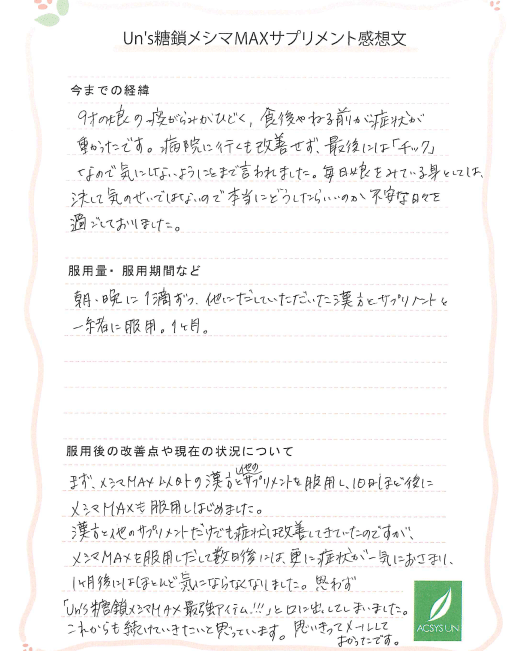 Un's糖鎖メシマMAXサプリメント感想文
今までの経緯
9才の娘の痰がらみがひどく、食後やねる前が症状が
重かったです。病院に行くも改善せず、最後には「チック」
なので気にしないようにとまで言われました。毎日娘をみている身としては、
決して気のせいではないので本当にどうしたらいいのか不安な日々を
過ごしておりました。
服用量・服用期間など
朝・晩に1滴ずつ、他にだしていただいた漢方とサプリメントと
一緒に服用。1ヶ月。
服用後の改善点や現在の状況について
まず、メシマMAX以外の漢方と他のサプリメントを服用し、10日ほど後に
メシマMAXも服用しはじめました。
漢方と他のサプリメントだけでも症状は改善してきていたのですが、
メシマMAXを服用しだして数日後には、更に症状が一気におさまり、
1ヶ月後にはほとんど気にならなくなりました。思わず
「Un's糖鎖メシマMAX最強アイテム!!!」と口に出してしまいました。
これからも続けていきたいと思っています。思いきってメールして
よかったです。
ACSYS UN